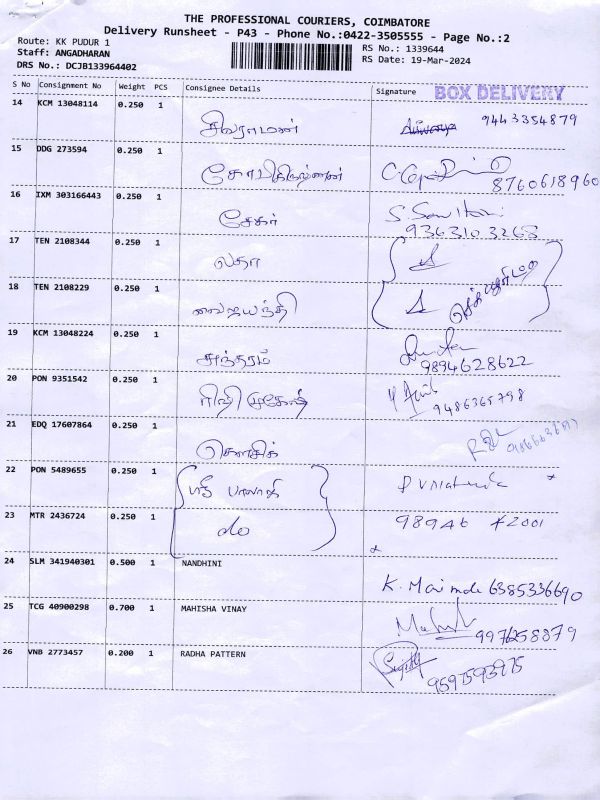 THE PROFESSIONAL COURIERS, COIMBATORE
Delivery Runsheet - P43 - Phone No.:0422-3505555 - Page No.:2
Route: KK PUDUR 1
RS No.: 1339644
Staff: ANGADHARAN
RS Date: 19-Mar-2024
DRS No.: DCJB133964402
S No Consignment No Weight PCS Consignee Details Signature BOX DELIVERY
14 KCM 13048114 0.250 1 சிவராமன் 9443354879
15 DDG 273594 0.250 1 கோபிகிருஷ்ணன் 8760618960
16 IXM 303166443 0.250 1 சேகர் 9363103268
17 TEN 2108344 0.250 1 லதா
18 TEN 2108229 0.250 1 வைஜயந்தி
19 KCM 13048224 0.250 1 சுந்தரம் 9894628622
20 PON 9351542 0.250 1 9486365798
21 EDQ 17607864 0.250 1 கௌசிக்
22 PON 5489655 0.250 1 ஸ்ரீ பாலாஜி
23 MTR 2436724 0.250 1 do 98946 42001
24 SLM 341940301 0.500 1 NANDHINI 6385336690
25 TCG 40900298 0.700 1 MAHISHA VINAY 9976258879
26 VNB 2773457 0.200 1 RADHA PATTERN 9597593975